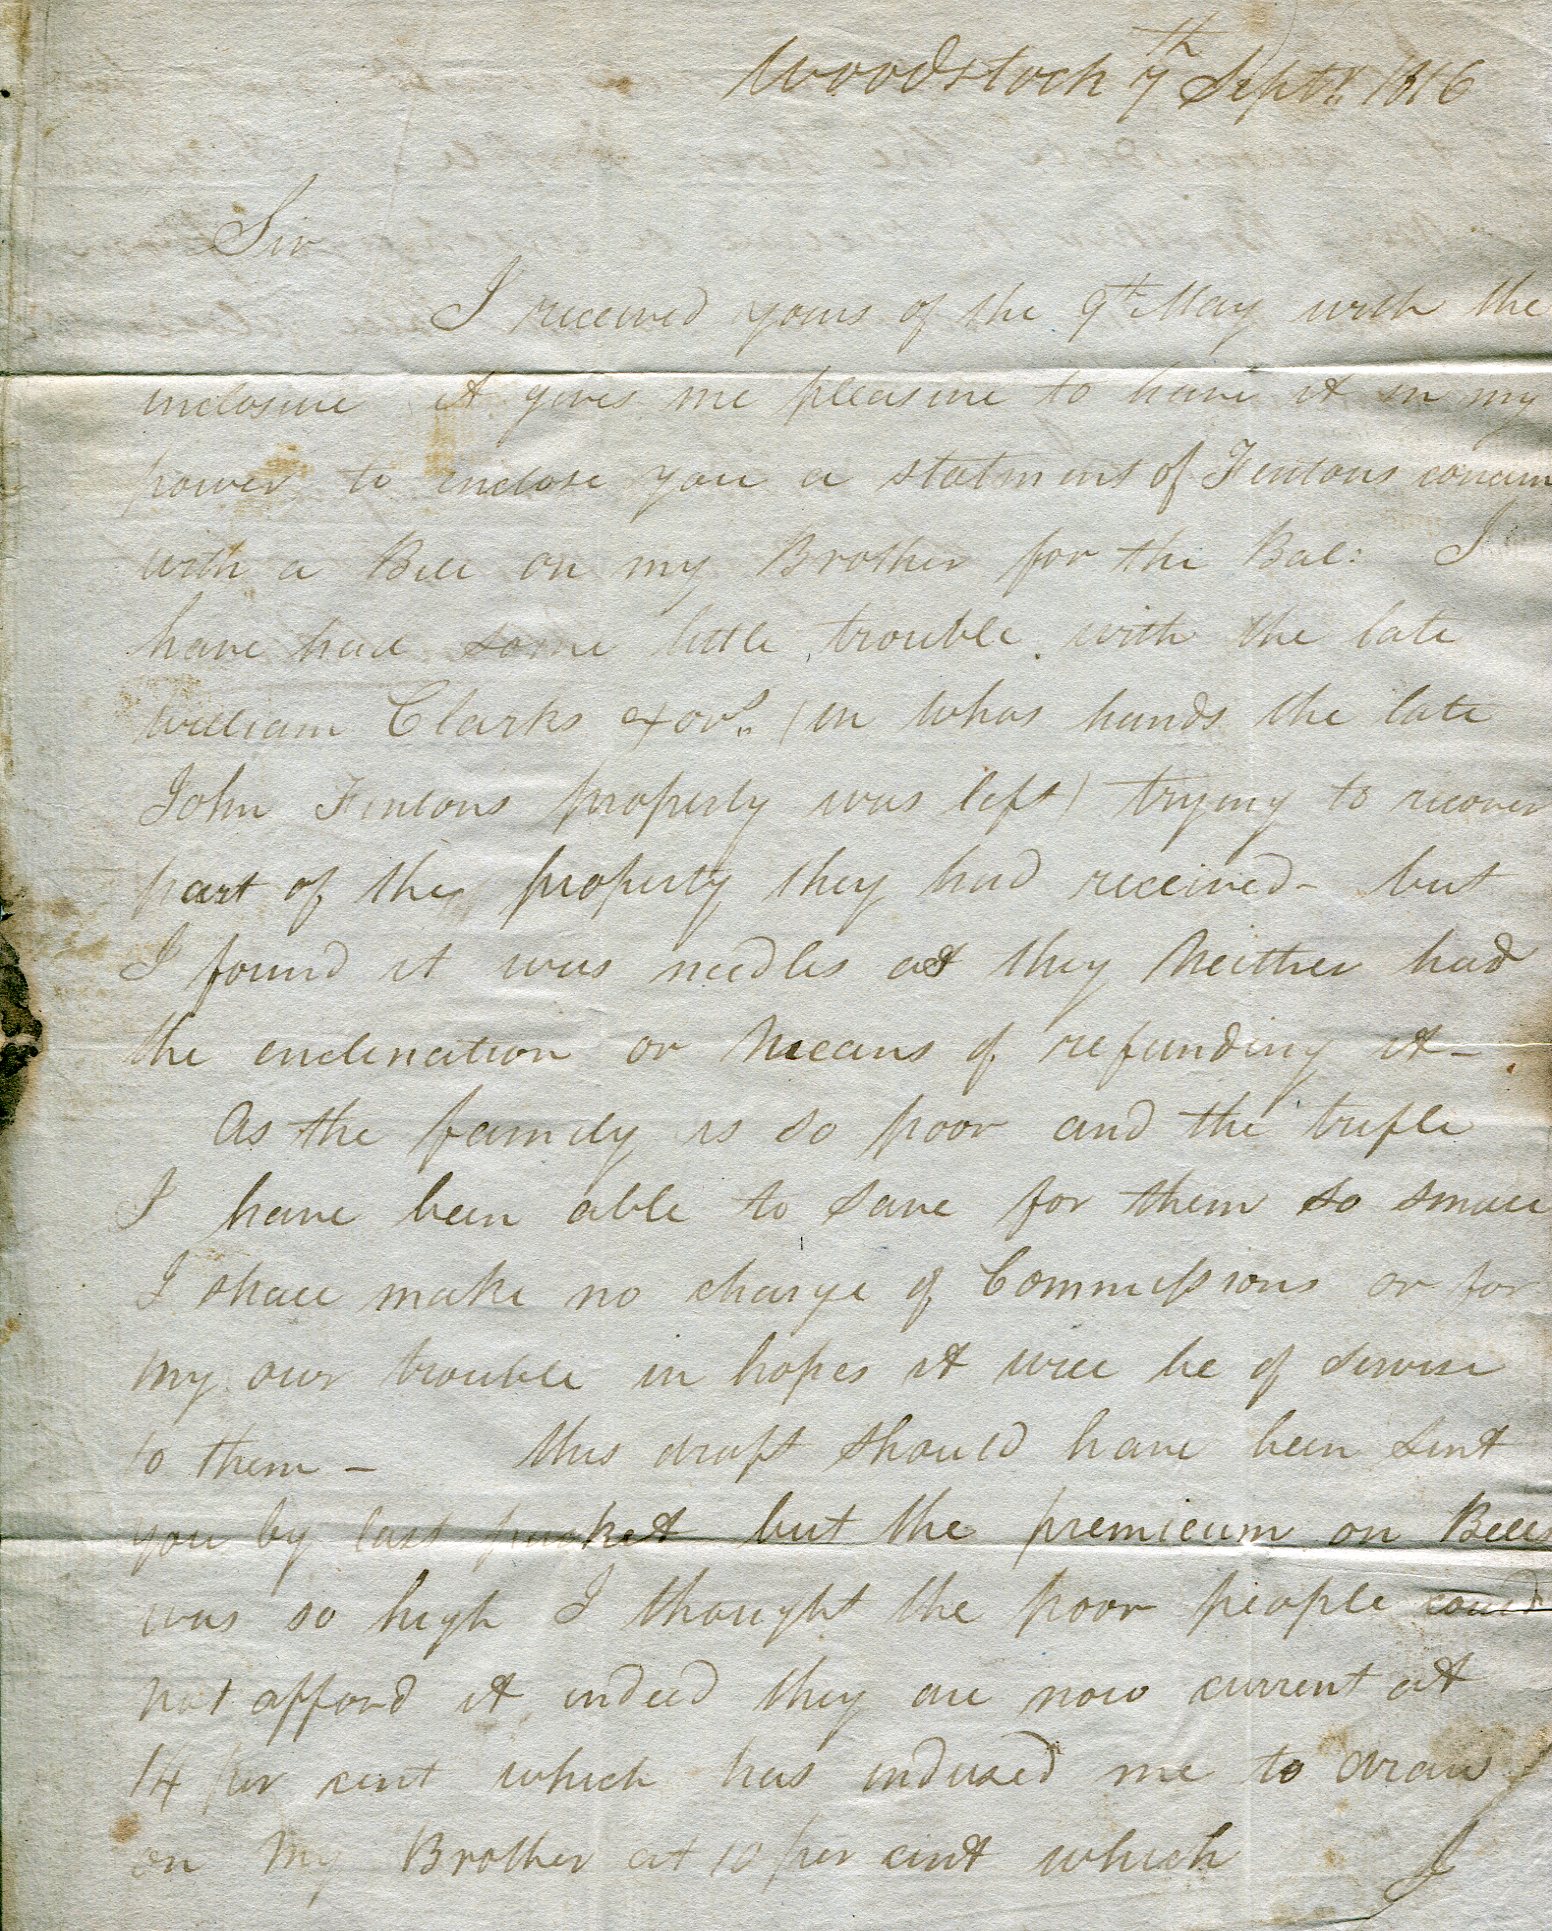 Woodstock 7th Septr. 1816
Sir
I received yours of the 9th May with the
inclosure it gives me pleasure to have it in my
power to enclose you a statment of Fentons concern
with a Bill on my Brother for the Bal: I
have had some little trouble with the late
William Clarks exors. (in whos hands the late
John Fentons property was left) trying to recover
part of the property they had received - but
I found it was needles as they Neither had
the enclenation or Means of refunding it -
As the family is so poor and the trifle
I have been able to save for them so small
I shall make no charge of Commissions or for
my own trouble in hopes it will be of service
to them - this draft should have been sent
you by last packet but the premieum on Bills
was so high I thought the poor people could
not afford it indeed they are now current at
14 per cent which has indused me to draw
on My Brother at 10 per cent which I